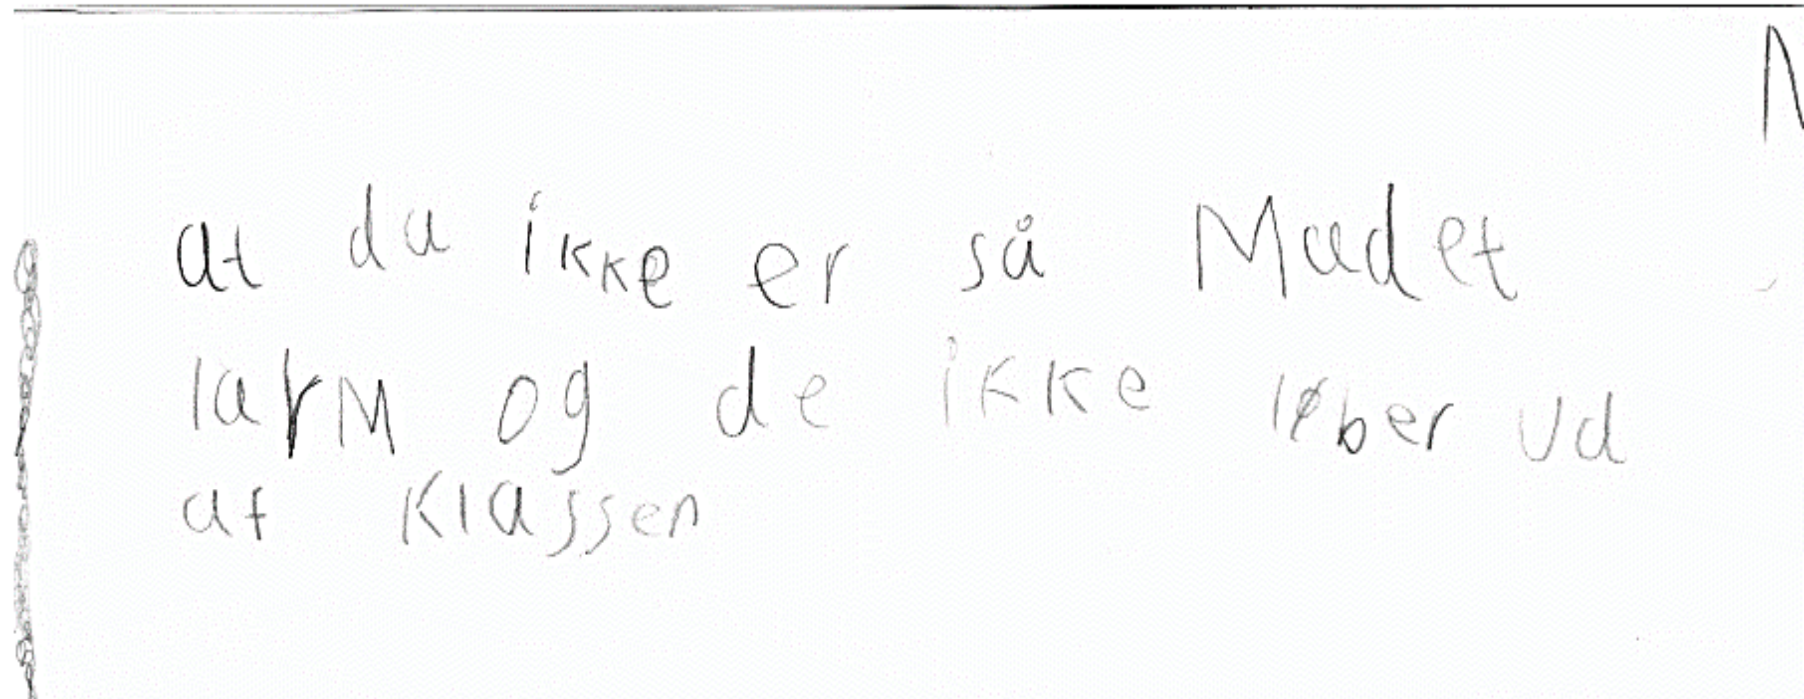 N
at du ikke er så Madet
larM og de ikke løber ud
af klassen